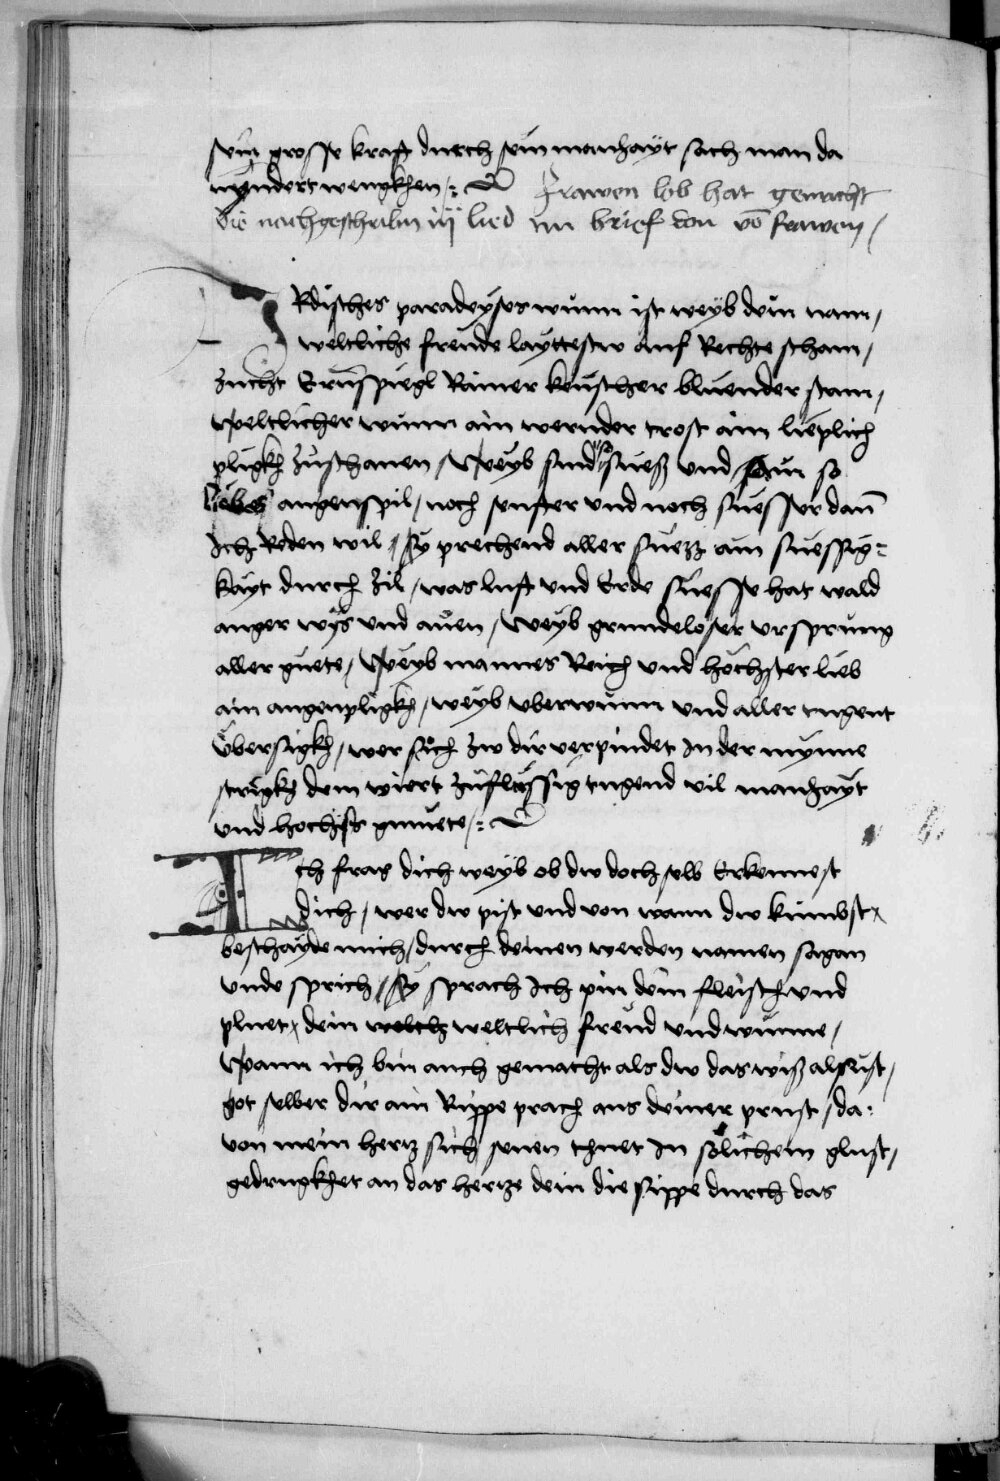 sein grosse krafft durch sein manhayt sach man da
nyndert wengkhen /:
Frawen lob hat gemacht
die nachgeschribn iij lied im brief von vō frawen /
IRdisches paradeyses wunn ist weyb dein nam /
weltliche freude layttestw auf Rechte scham /
zucht Ernspiegl Rainer keuscher bluender stam /
weltlicher wunn ain wernder trost ain lieplich
pligkh zuschauen / Weyb sind so suess und sein so
liebes augenspil / noch senfter und noch suesser dañ
Ich Reden wil / sy prechend aller suezz ain suessig=
kayt durch zil / was luft und Erde suesse hat wald
anger wys und auen / Weyb grundeloser ursprung
aller guete / Weyb mannes Reich und höchster lieb
ain augenpligkh / weyb uberwunn und aller tugent
übersigkh / wer sich zw dir verpindet In der mynne
strigkh dem wiert zuflüssig tugend vil manhayt
und hochists gmuete /:
Ich frag dich weyb ob dw doch selb Erkennest
dich / wer dw pist und von wann dw kumbst /
beschayde mich / durch deinen werden namen sagan
unde sprich / Sy sprach Ich pin dein fleisch und
pluet / dein weltlich freud und wunne /
Wann ich bin auch gemacht als dw das wiss alsust /
got selber dir ain Rippe prach aus deiner prust / da:
von mein hertz sich senen thuet In sölichem glust /
gedrugkhet an das hertze dein die sippe durch das